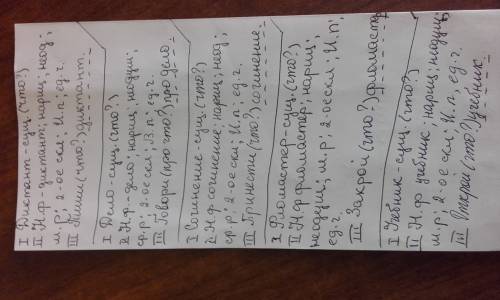 I Диктант - сущ. (что?)
II Н.ф - диктант; нариц; неод;
м.р; 2-ое скл; И.п; ед.ч.
III Пиши (что?) диктант.
I Дело - сущ. (что?)
II Н.ф. - дело; нариц; неодуш;
ср.р; 2-ое скл; В.п; ед.ч.
III Говори (про что?) про дело.
I Сочинение - сущ. (что?)
II Н.ф сочинение; нариц; неод;
ср.р; 2-ое скл; И.п; ед.ч.
III Принести (что?) сочинение
I Фломастер - сущ. (что?)
II Н.ф фломастер; нариц;
неодуш; м.р; 2-ое скл; И.п;
ед.ч.
III Закрой (что?) фломастр
I Учебник - сущ. (что?)
II Н.ф учебник; нариц; неодуш;
м.р; 2-ое скл; И.п; ед.ч.
III Открой (что?) учебник